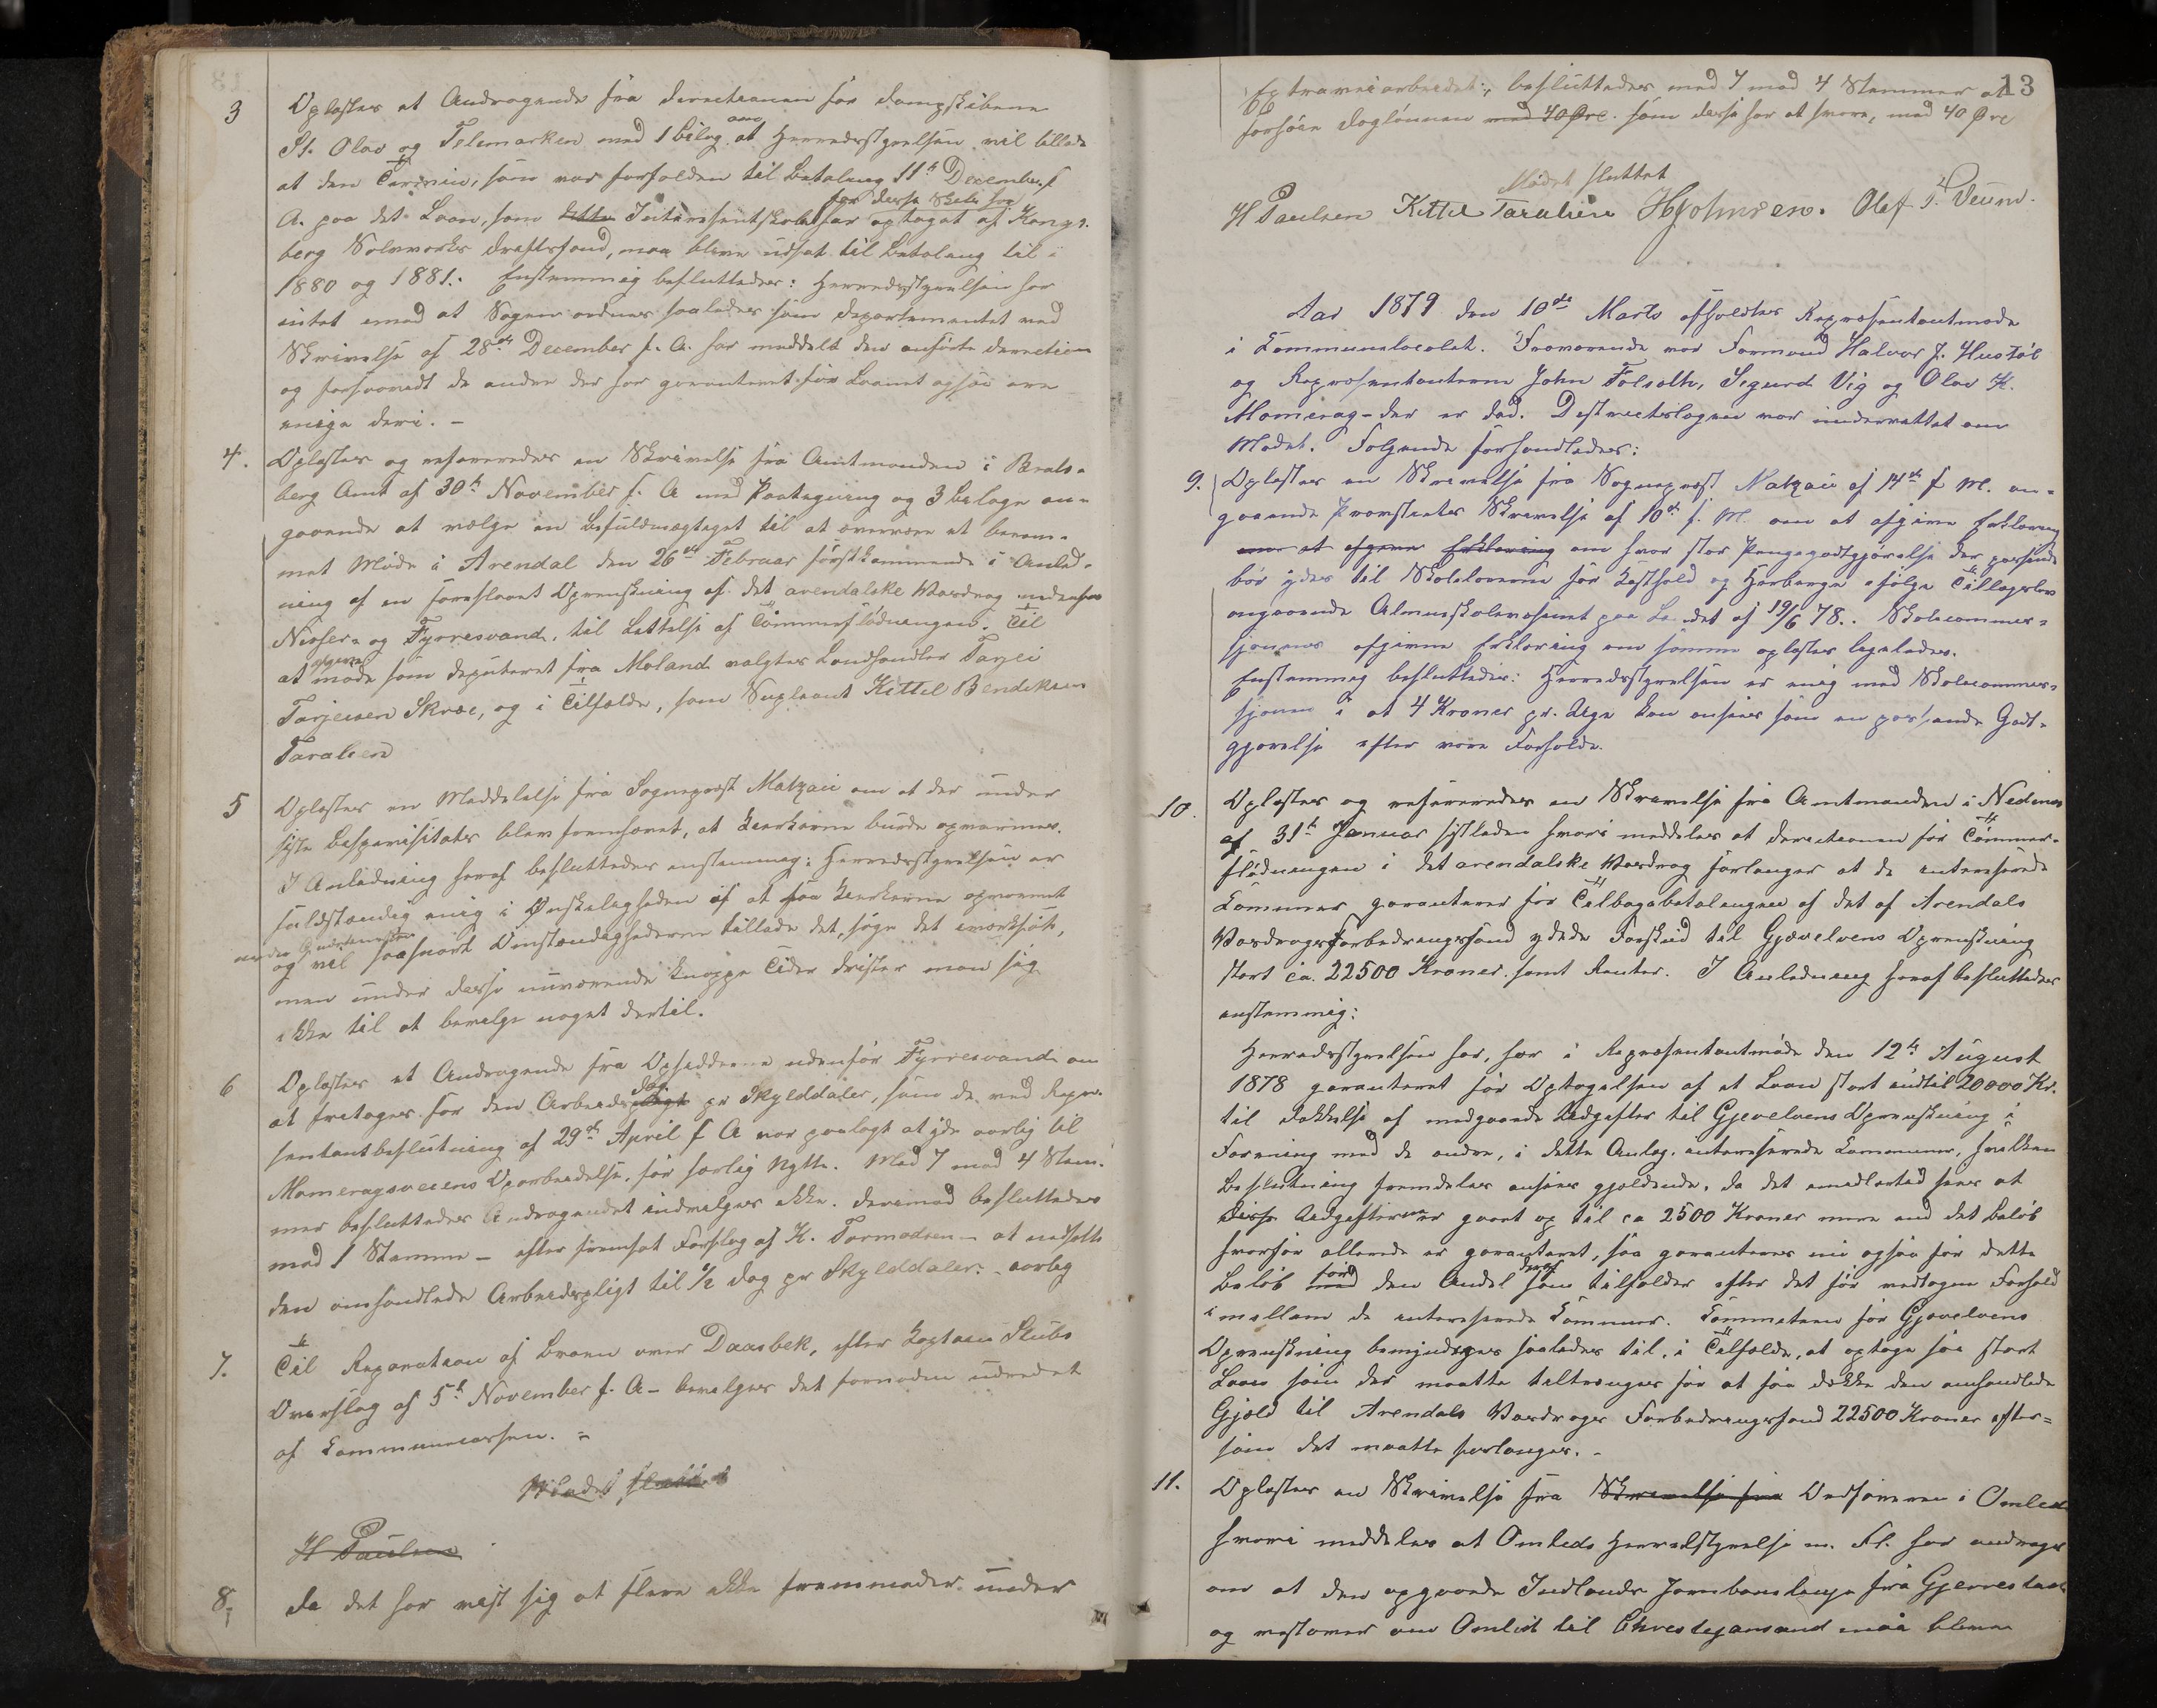 3 Oplæstes et Andragende fra Directionen for Dampskibene
St. Olav og Telemarken med 1 Bilag om at Herredsstyrelsen vil tillade
at den Termin, som var forfalden til Betaling 11te December f.
A. paa det Laan, som dette Interesentskab for disse Skibe har optaget af Kongs-
berg Sølvværks Driftsfond, maa blive udsat til Betaling til i
1880 og 1881. Enstemmig besluttedes: Herredsstyrelsen har
intet imod at Sagen ordnes saaledes som Departementet ved
Skrivelse af 28de December f. A. har meddelt den anførte Direction
og forsaavidt de andre der har garanteret for Laanet ogsaa ere
enige deri. –
4. Oplæstes og refereredes en Skrivelse fra Amtmanden i Brats-
berg Amt af 30te November f. A med Paategning og 3 Bilage an-
gaaende at vælge en Befuldmægtiget til at overvære et beram-
met Møde i Arendal den 26de Februar førstkommende i Anled-
ning af en foreslaaet Oprenskning af det arendalske Vasdrag nedenfor
Nisser- og Fyrresvand, til Lettelse af Tømmerflødningen. Til
at møde som Deputeret fra Moland valgtes Landhandler Tarjei
Tarjeisen Skræe, og i Tilfælde, som Supleant Kittel Bendiksen
Taraldsen
5 Oplæstes en Meddelelse fra Sogneprest Matzau om at der under
siste Bispevisitats blev fremhævet, at Kirkerne burde opvarmes.
I Anledning heraf besluttedes enstemmig: Herredsstyrelsen er
fuldstændig enig i Ønskeligheden af at faa Kirkerne opvarmet
under Gudstjenesten
og vil saasnart Omstændighederne tillade det, søge det iværksat,
men under disse nuværende knappe Tider drister man sig
ikke til at bevilge noget dertil.
6 Oplæstes et Andragende fra Opsidderne udenfor Fyrresvand om
at fritages for den Arbeidspligt Dag pr Skylddaler, som de ved Repræ-
sentantbeslutning af 29de April f A var paalagt at yde aarlig til
Momeragsveiens Oparbeidelse, for særlig Nytte. Med 7 mod 4 Stem-
mer besluttedes Andragendet indvilges ikke. Derimod besluttedes
mod 1 Stemme – efter fremsat Forslag af K. Tarmodsen – at nedsette
den omhandlede Arbeidspligt til 1/2 Dag pr Skylddaler aarlig
7. Til Reparation af Broen over Daasbek, efter Kaptein Stubs
Overslag af 5te November f. A – bevilges det fornødne udredet
af Kommunecassen. –
Mødet sluttet
H Paulsen
8, Da det har vist sig at flere ikke fremmøder under
13
Extraveiarbeidet, besluttedes med 7 mod 4 Stemmer at
forhøie Daglønnen med 40 Øre. som disse har at svare, med 40 Øre
Mødet sluttet
H Paulsen Kittel Taraldsen HJohnsen. Olef T. Veum.
Aar 1879 den 10de Marts afholdtes Repræsentantmøde
i Kommunelocalet. Fraværende var Formand Halvor J. Hustøl
og Repræsentanterne John Folsæth, Sigurd Vig og Olav K.
Momerag – der er død. Distrectslægen var underrettet om
Mødet. Følgende forhandledes:
9. Oplæstes en Skrivelse fra Sogneprest Matzau af 14de f M. an-
gaaende Provstiets Skrivelse af 10de f. M. om at afgive Erklæring
om at afgive Erklæring om hvor stor Pengegodtgjørelse der passende
bør ydes til Skolelærerne for Kosthold og Herberge ifølge Tillægslov
angaaende Almueskolevæsenet paa Landet af 19/6 78. Skolecommis-
sjonens afgivne Erklæring om samme oplæstes ligeledes.
Enstemmig besluttedes: Herredsstyrelsen er enig med Skolecommis-
sjonen i at 4 Kroner pr. Uge kan ansees som en passende Godt-
gjørelse efter vore Forholde.
10. Oplæstes og refereredes en Skrivelse fra Amtmanden i Nedenes
af 31te Januar sistleden hvori meddeles at Directionen for Tømmer-
flødningen i det arendalske Vasdrag forlanger at de interesserede
Kommuner garanterer for Tilbagebetalingen af det af Arendals
Vasdragsforbedringsfond ydede Forskud til Gjøvelvens Oprenskning
stort ca. 22500 Kroner samt Renter. I Anledning heraf besluttedes
enstemmig:
Herredsstyrelsen har, her i Repræsentantmøde den 12te August
1878 garanteret for Optagelsen af et Laan stort indtil 20000 Kr.
til Dækkelse af medgaaende Udgifter til Gjevelvens Oprenskning i
Forening med de andre, i dette Anlæg interesserede Kommuner, hvilken
Beslutning fremdeles ansees gjeldende, da det imidlertid sees at
disse Udgifter er gaaet op til ca 2500 Kroner mere end det Beløb
hvorfor allerede er garanteret, saa garanteres nu ogsaa for dette
Beløb med for den Andel som deraf tilfalder efter det før vedtagne Forhold
imellem de interesserede Kommuner. Kommiteen for Gjøvelvens
Oprenskning bemyndiges saaledes til, i Tilfælde, at optage saa stort
Laan som der maatte tiltrænges for at faa dække den omhandlede
Gjæld til Arendals Vasdrags Forbedringsfond 22500 Kroner efter-
som det maatte forlanges. –
11. Oplæstes en Skrivelse fra Skrivelse fra Ordføreren i Omlid
hvori meddeles at Omlids Herredsstyrelse m. Fl. har andraget
om at den opgaaede Indlands Jernbanelinje fra Gjerrestad
og vestover om Omlid til Christjansand maa blive